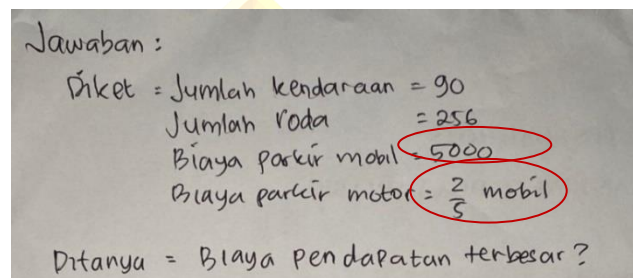 Jawaban :
Diket = Jumlah kendaraan = 90
Jumlah roda = 256
Biaya parkir mobil = 5000
Biaya parkir motor = 2/5 mobil
Ditanya = Biaya pendapatan terbesar ?